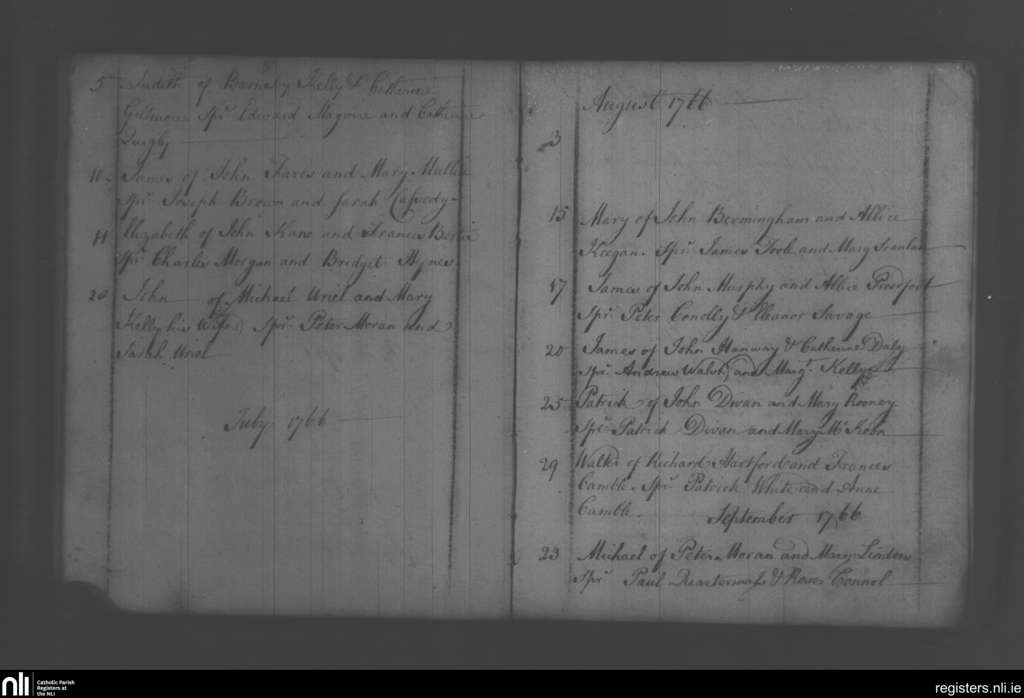 5 Judith of Barnaby Kelly & Catherine
Gilmore Spr. Edward Maguire and Catherine
Quigly
10 James of John Fares and Mary Mullen
Spr. Joseph Brown and Sarah Casserdy
11 Elizabeth of John Kane and Frances
Spr. Charles Morgan and Bridget Hynes
20 John of Michael Uriel and Mary
Kelly his Wife Spr. Peter Moran and
Sarah Uriel
July 1766
August 1766
3
15 Mary of John Bermingham and Allice
Keegan. Spr. James Toole and Mary Scanlan
17 James of John Murphy and Allice Poverfoot
Spr. Peter Conolly & Eleanor Savage
20 James of John Hanway & Catherine Daly
Spr. Andrew Walsh and Margt. Kelly
25 Patrick of John Divan and Mary Rooney
Spr. Patrick Divan and Mary McKeon
29 of Richard Hartford and Frances
Camble. Spr. Patrick White and Anne
Camble.
September 1766
23 Michael of Peter Moran and Mary Linden
Spr. Paul Quartermass & Rose Connol
nli Catholic Parish
Registers at
the NLI
registers.nli.ie